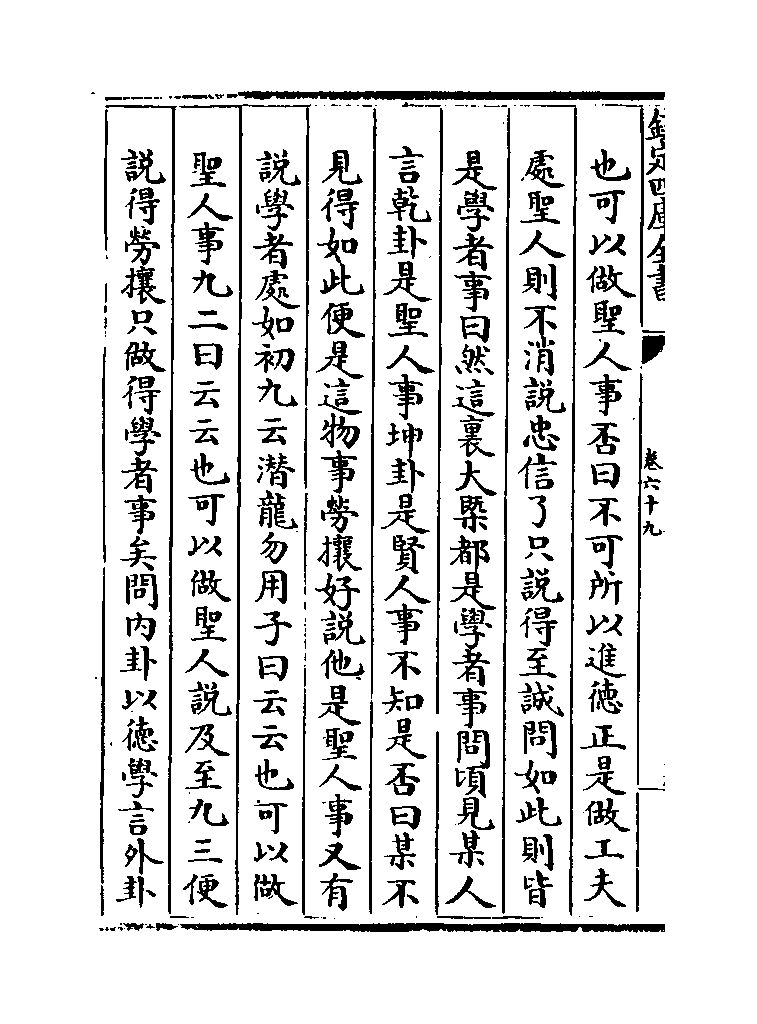 欽定四庫全書
卷六十九
也可以做聖人事否曰不可所以進徳正是做工夫
處聖人則不消説忠信了只説得至誠問如此則皆
是學者事曰然這裏大槩都是學者事問頃見某人
言乾卦是聖人事坤卦是賢人事不知是否曰某不
見得如此便是這物事勞攘好説他是聖人事又有
説學者處如初九云潛龍勿用子曰云云也可以做
聖人事九二曰云云也可以做聖人説及至九三便
説得勞攘只做得學者事矣問内卦以徳學言外卦